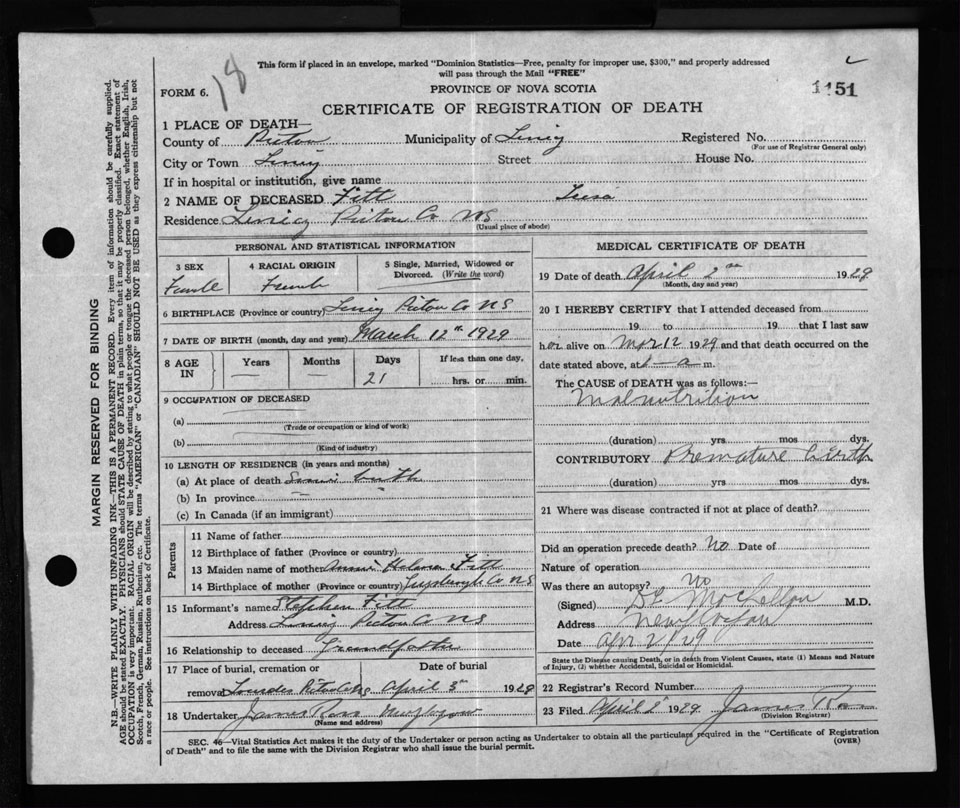 18
This form if placed in an envelope, marked "Dominion Statistics—Free, penalty for improper use, $300," and properly addressed
will pass through the Mail "FREE"
FORM 6.
PROVINCE OF NOVA SCOTIA
1151
CERTIFICATE OF REGISTRATION OF DEATH
1 PLACE OF DEATH—
County of Pictou Municipality of Registered No.
(For use of Registrar General only)
City or Town Street House No.
If in hospital or institution, give name
2 NAME OF DECEASED Fitt
Residence Pictou Co NS
(Usual place of abode)
PERSONAL AND STATISTICAL INFORMATION
3 SEX 4 RACIAL ORIGIN 5 Single, Married, Widowed or
Divorced. (Write the word)
Female French
6 BIRTHPLACE (Province or country) Pictou Co NS
7 DATE OF BIRTH (month, day and year) March 12th 1929
8 AGE IN Years Months Days If less than one day,
21 hrs. or min.
9 OCCUPATION OF DECEASED
(a)
(Trade or occupation or kind of work)
(b)
(Kind of industry)
10 LENGTH OF RESIDENCE (in years and months)
(a) At place of death birth
(b) In province
(c) In Canada (if an immigrant)
Parents
11 Name of father
12 Birthplace of father (Province or country)
13 Maiden name of mother Annie Helena Fitt
14 Birthplace of mother (Province or country) Guysborough Co NS
15 Informant's name Stephen Fitt
Address Pictou Co NS
16 Relationship to deceased Grandfather
17 Place of burial, cremation or Date of burial
removal Lourdes April 3rd 1929
18 Undertaker James Ross New Glasgow
(Name and address)
MEDICAL CERTIFICATE OF DEATH
19 Date of death April 2nd 1929
(Month, day and year)
20 I HEREBY CERTIFY that I attended deceased from
19 to 19 that I last saw
her alive on Mar 12 1929 and that death occurred on the
date stated above, at 1 a m.
The CAUSE of DEATH was as follows:—
Malnutrition
(duration) yrs mos dys.
CONTRIBUTORY Premature birth
(duration) yrs. mos. dys.
21 Where was disease contracted if not at place of death?
Did an operation precede death? No Date of
Nature of operation
Was there an autopsy? no
(Signed) M.D.
Address New Glasgow
Date Apr 2/29
State the Disease causing Death, or in death from Violent Causes, state (1) Means and Nature
of Injury, (2) whether Accidental, Suicidal or Homicidal.
22 Registrar's Record Number
23 Filed April 2 1929 James Ross
(Division Registrar)
SEC. 46—Vital Statistics Act makes it the duty of the Undertaker or person acting as Undertaker to obtain all the particulars required in the "Certificate of Registration
of Death" and to file the same with the Division Registrar who shall issue the burial permit.
(OVER)
MARGIN RESERVED FOR BINDING
N.B.—WRITE PLAINLY WITH UNFADING INK—THIS IS A PERMANENT RECORD. Every item of information should be carefully supplied.
AGE should be stated EXACTLY. PHYSICIANS should STATE CAUSE OF DEATH in plain terms, so that it may be properly classified. Exact statement of
OCCUPATION is very important. RACIAL ORIGIN will be described by stating to what people or tongue the deceased person belonged, whether English, Irish,
Scotch, French, German, Russian, Ruthenian, etc. The terms "AMERICAN" or "CANADIAN" SHOULD NOT BE USED as they express citizenship but not
a race or people. See instructions on back of Certificate.